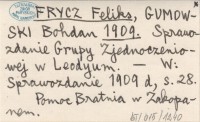 FRYCZ Feliks, GUMOW-
SKI Bohdan 1909. Sprawo-
zdanie Grupy Zjednoczenio-
wej w Leodyum. — W:
Sprawozdanie 1909 d, s. 28.
Pomoc Bratnia w Zakopa-
nem.